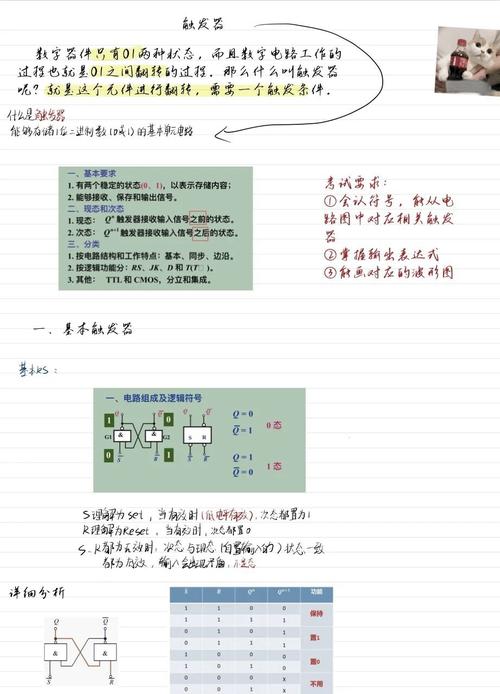 触发器
数字器件只有01两种状态，而且数字电路工作的
过程也就是01之间翻转的过程。那么什么叫触发器
呢？就是这个元件进行翻转，需要一个触发条件。
什么是触发器
能够存储1位二进制数(0或1)的基本单元电路
一、基本要求
1. 有两个稳定的状态(0、1)，以表示存储内容；
2. 能够接收、保存和输出信号。
二、现态和次态
1. 现态： Qⁿ 触发器接收输入信号之前的状态。
2. 次态： Qⁿ⁺¹ 触发器接收输入信号之后的状态。
三、分类
1. 按电路结构和工作特点：基本、同步、边沿。
2. 按逻辑功能分：RS、JK、D 和 T(T')。
3. 其他： TTL 和 CMOS，分立和集成。
考试要求：
①会认符号，能从电
路图中对应相关触发
器
②掌握输出表达式
③能画对应的波形图
一、基本触发器
基本RS：
一、电路组成及逻辑符号
Q Q̅ Q Q̅
1 0
G1 & & G2 S R
0 1
S̅ R̅ S̅ R̅
Q = 0
Q̅ = 1
0 态
Q = 1
Q̅ = 0
1 态
S理解为set，当有效时(低电平有效)，次态都置为1
R理解为Reset，当有效时，次态都置0
S、R都为无效时，次态与现态(自己输入的)状态一致
都为有效，输入会出现矛盾，不定态
详细分析
Q Q̅
& &
S̅ R̅
S̅ R̅ Qⁿ Qⁿ⁺¹ 功能
1 1 0 0 保持
1 1 1 1
0 1 0 1 置1
0 1 1 1
1 0 0 0 置0
1 0 1 0
0 0 0 x 不用
0 0 1 x